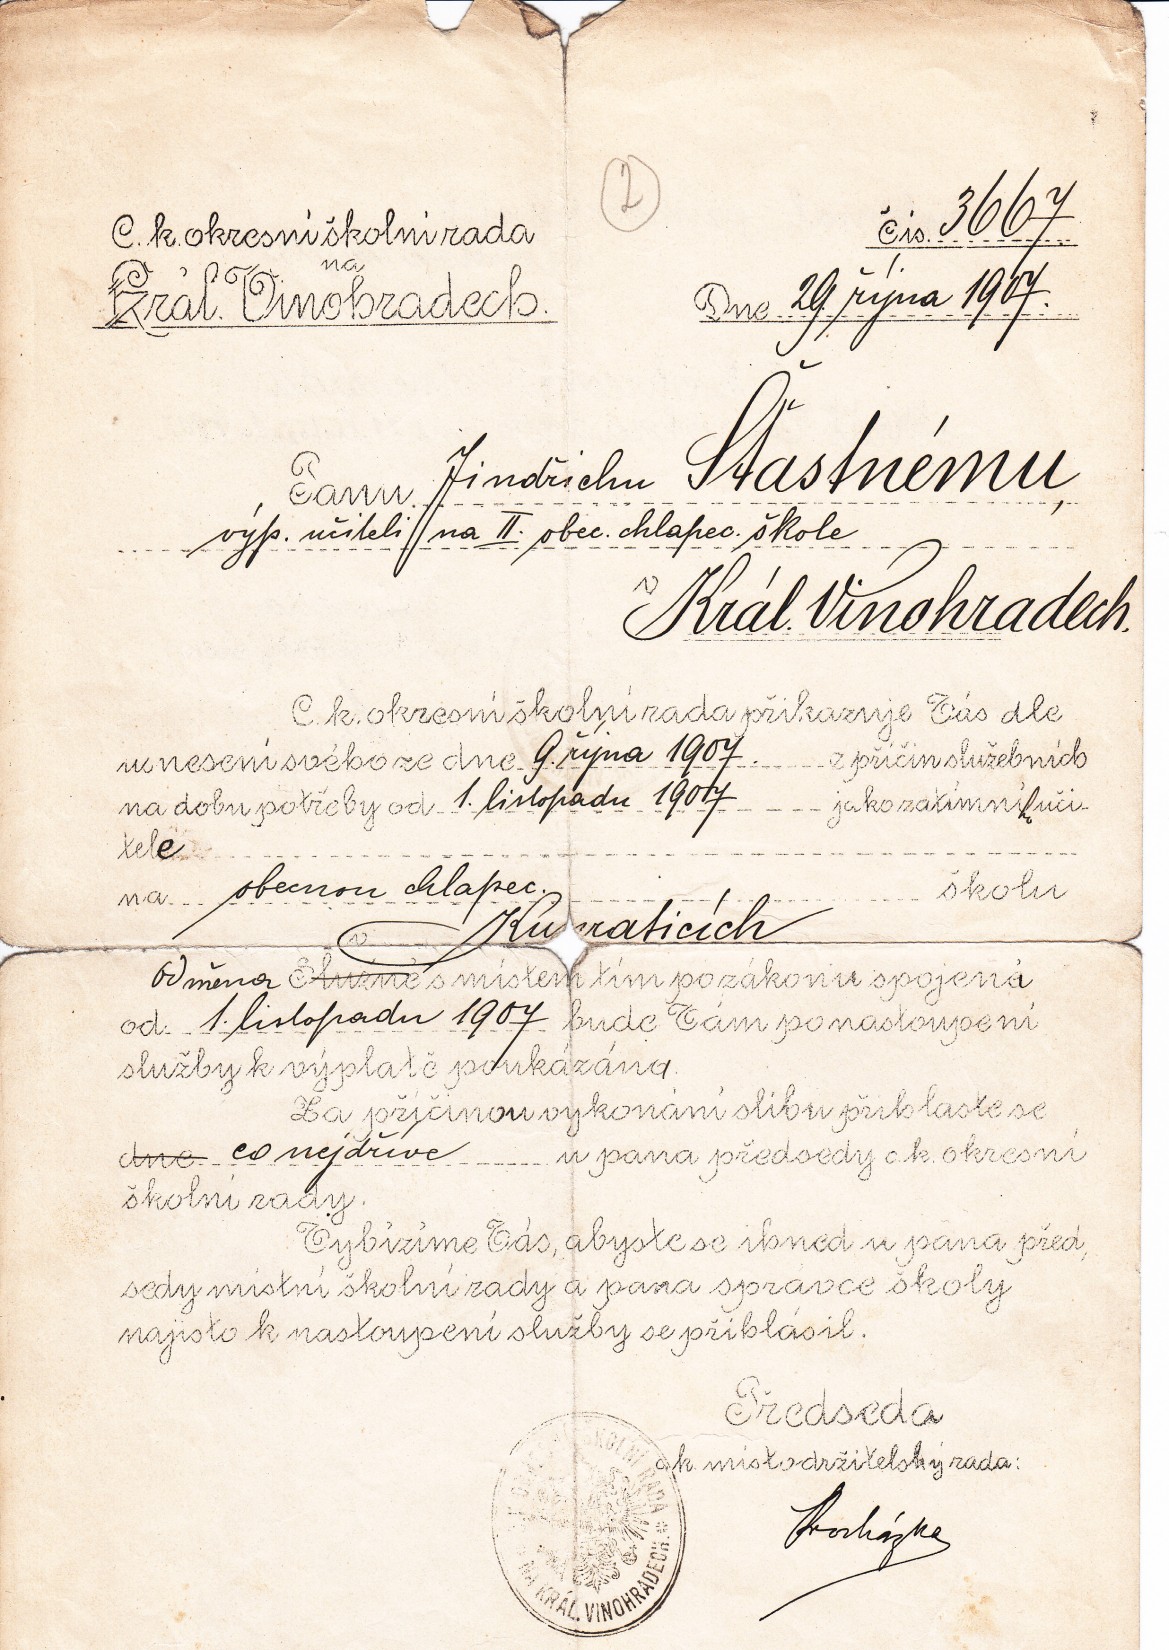 2
C. k. okresní školní rada
na
Král. Vinohradech.
Čís. 3667
Dne 29. října 1907.
Panu Jindřichu Šťastnému,
výp. učiteli na II. obec. chlapec. škole
v Král. Vinohradech.
C. k. okresní školní rada přikazuje Vás dle
usnesení svého ze dne 9. října 1907. z příčin služebních
na dobu potřeby od 1. listopadu 1907 jako zatímního uči-
tele
na obecnou chlapec. školu
v Kunraticích
Odměna Služné s místem tím po zákonu spojená
od 1. listopadu 1907 bude Vám po nastoupení
služby k výplatě poukázána.
Za příčinou vykonání slibu přihlaste se
dne co nejdříve u pana předsedy c. k. okresní
školní rady.
Vybízíme Vás, abyste se ihned u pana před,
sedy místní školní rady a pana správce školy
najisto k nastoupení služby se přihlásil.
Předseda
c. k. místodržitelský rada:
Procházka
ŠKOLNÍ RADA
NA KRÁL. VINOHRADECH.